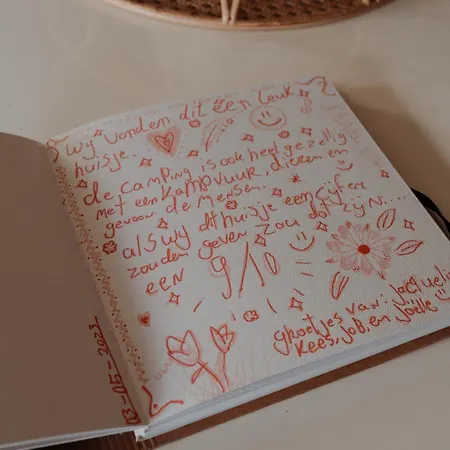 wij vonden dit een leuk
huisje.
de camping is ook heel gezellig
met een kampvuur, dieren en
gewoon de mensen.
als wij dit huisje een cijfer
zouden geven zou dat zijn...
een 9/10
groetjes van: Jacquelin
Kees, job, en Joëlle
03-05-2023